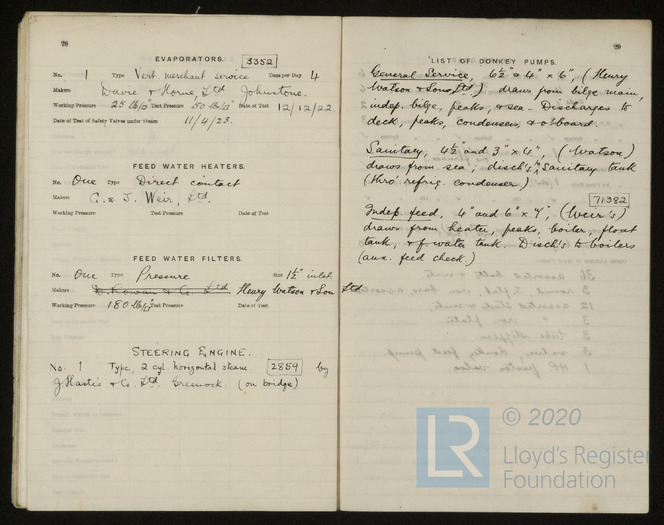 78
EVAPORATORS. 3352
No. 1 Type Vert. merchant service Tons per Day 4
Makers Davie & Horne, Ltd Johnstone.
Working Pressure 25 lb/□" Test Pressure 50 lb/□" Date of Test 12/12/22.
Date of Test of Safety Valves under Steam 11/4/23.
FEED WATER HEATERS.
No. One Type Direct contact
Makers G. & J. Weir, Ltd.
Working Pressure Test Pressure Date of Test
FEED WATER FILTERS.
No. One Type Pressure Size 1½" inlet
Makers D. Rowan & Co. Ltd Henry Watson & Son Ltd
Working Pressure 180 lb/□" Test Pressure Date of Test
STEERING ENGINE.
No. 1 Type, 2 cyl horizontal steam 2859 by
J. Hastie & Co. Ltd. Greenock. (on bridge)
79
LIST OF DONKEY PUMPS.
General Service, 6½" & 4" x 6", (Henry
Watson & Sons, Ltd.) draws from bilge main,
indep. bilge, peaks, & sea. Discharges to
deck, peaks, condensers, & o'board.
Sanitary, 4½" and 3" x 4", (Watson)
draws from sea; disch's to sanitary tank
(thro' refrig. condenser)
71382
Indep. feed, 4" and 6" x 7", (Weir's)
draws from heater, peaks, boiler, float
tank, & f. water tank. Disch's to boilers
(aux. feed check.)
LR © 2020
Lloyd's Register
Foundation